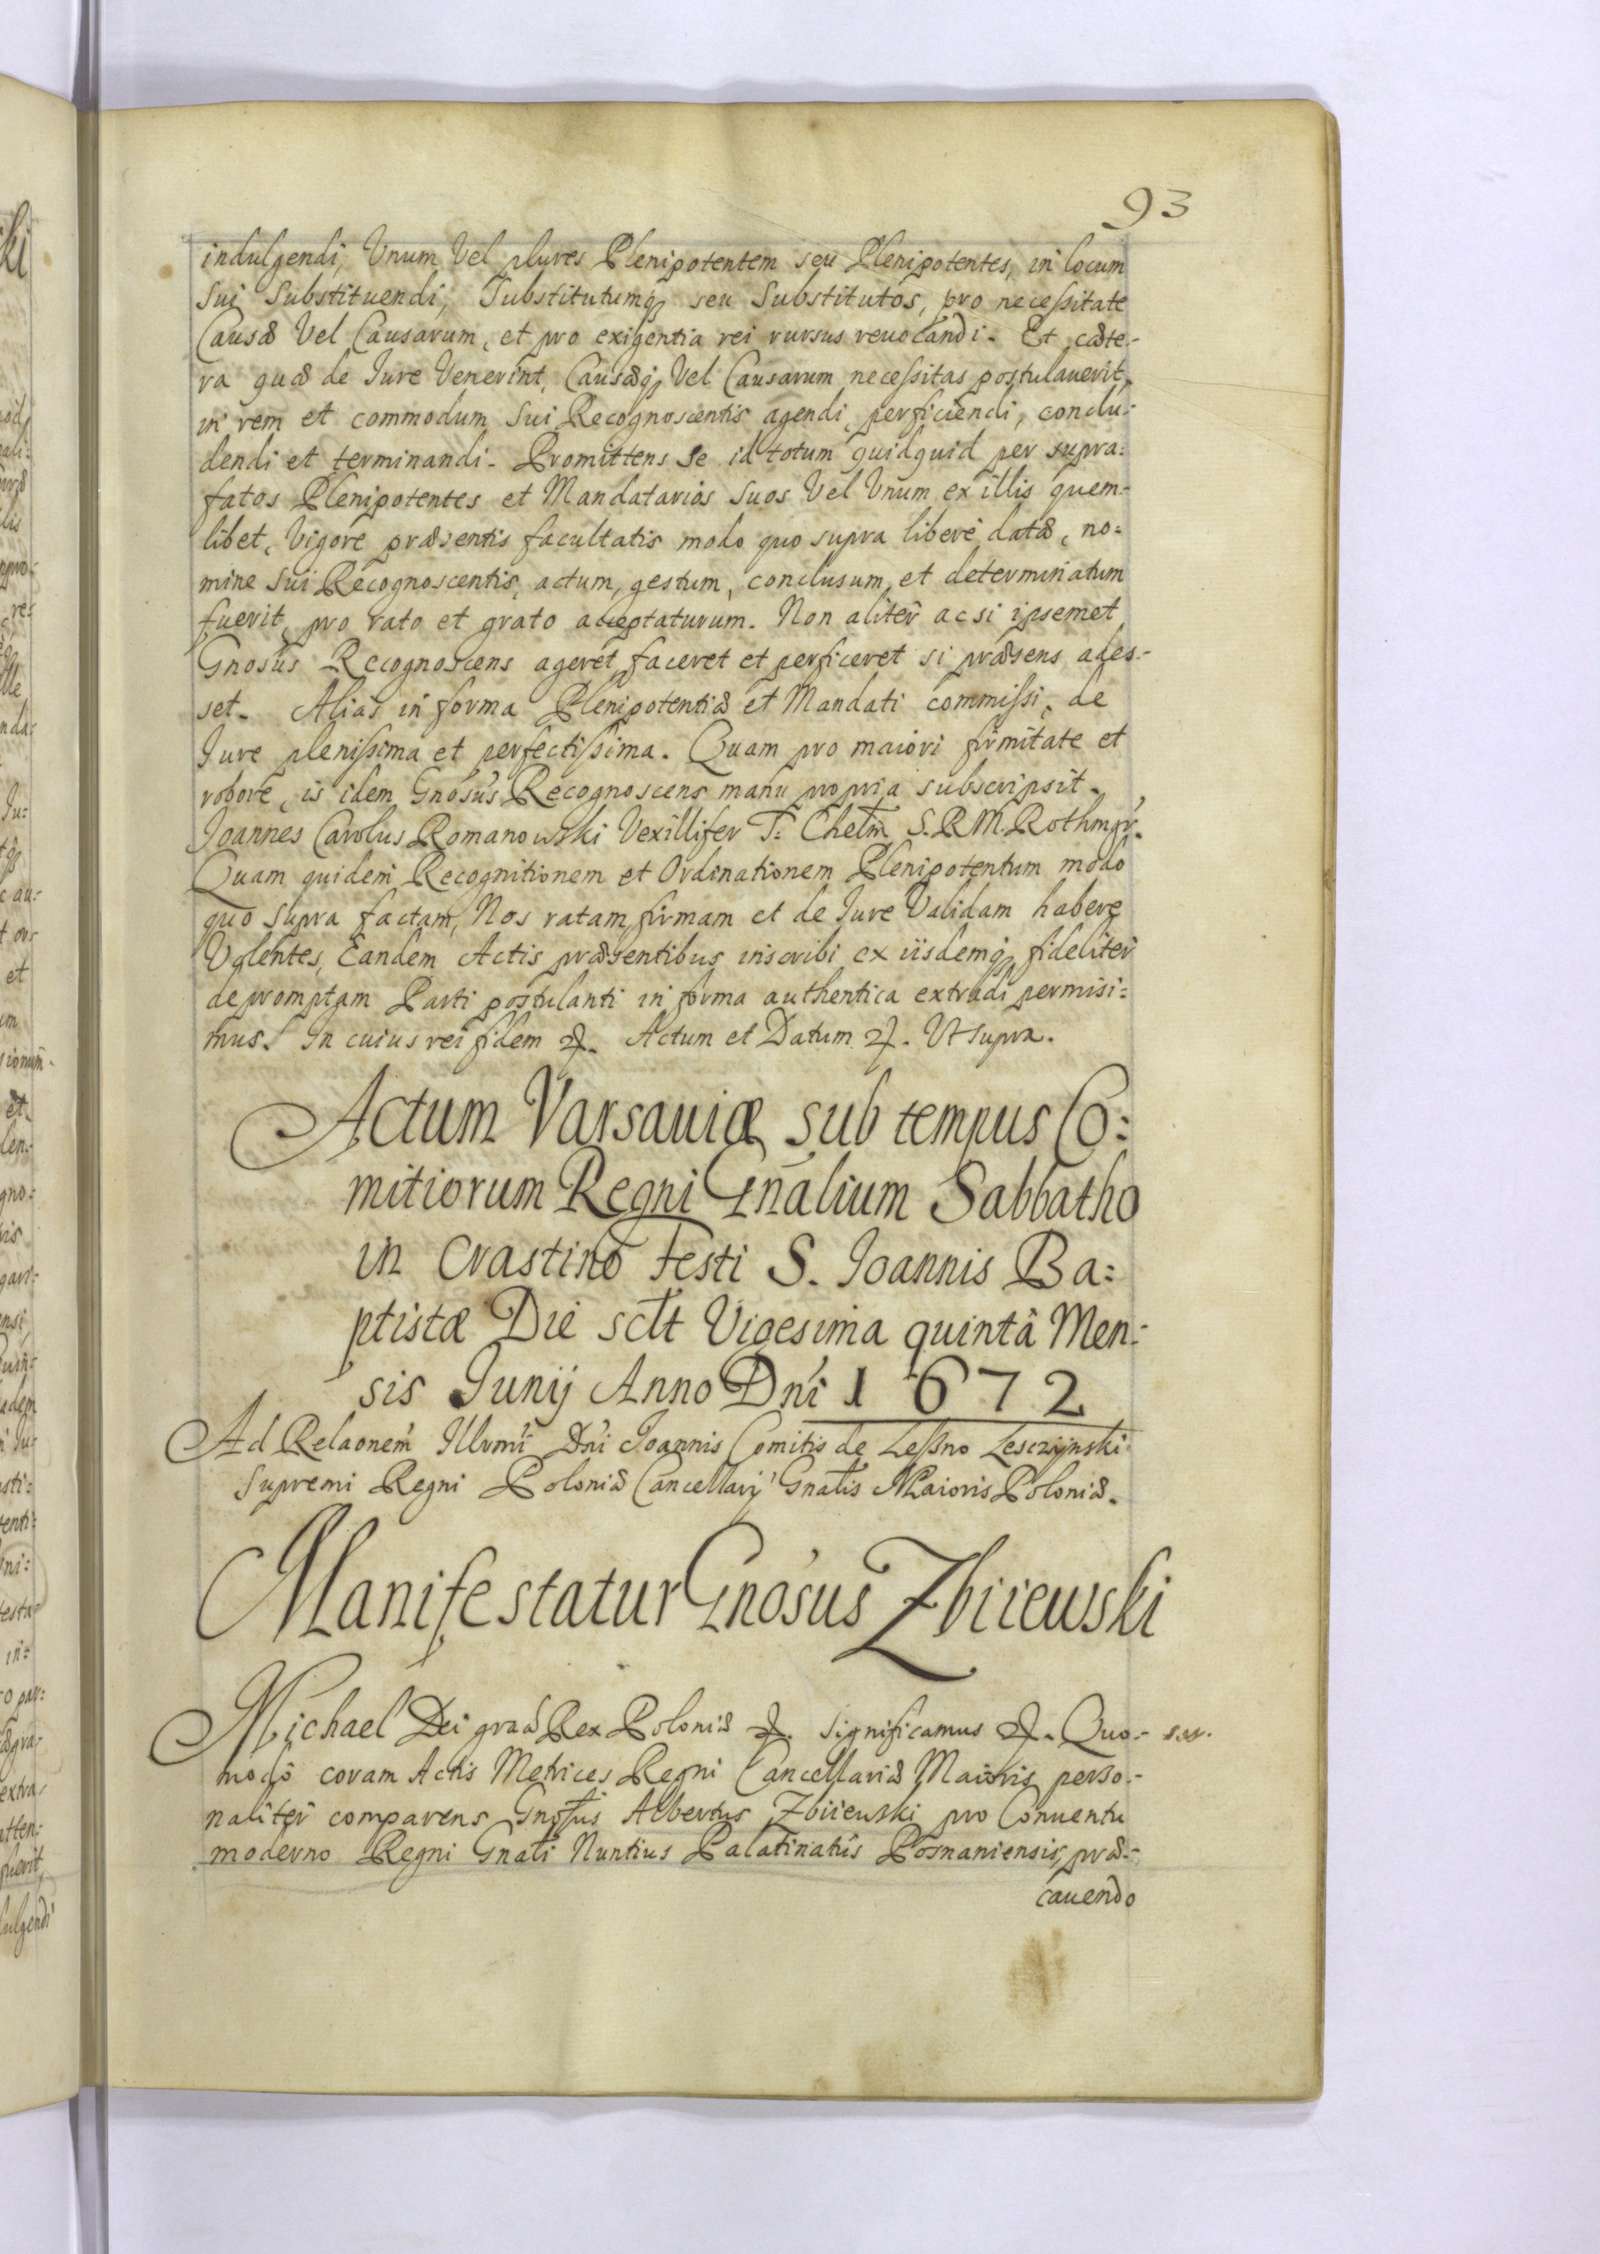 93
indulgendi, Vnum Vel plures Plenipotentem seu Plenipotentes, in locum
Sui Substituendi, Substitutumq₃ seu Substitutos, pro necessitate
Causæ Vel Causarum, et pro exigentia rei rursus reuocandi. Et cæte-
ra quæ de Iure Venerint, Causæq₃ Vel Causarum necessitas postulauerit,
in rem et commodum Sui Recognoscentis agendi, perficiendi, conclu-
dendi et terminandi. Promittens se id totum quidquid per supra:
fatos Plenipotentes et Mandatarios Suos Vel Vnum ex illis quem-
libet, Vigore præsentis facultatis modo quo supra liberè datæ, no:
mine Sui Recognoscentis, actum, gestum, conclusum, et determinatum
fuerit, pro rato et grato acceptaturum. Non aliter ac si ipsemet
Gnosus Recognoscens ageret, faceret et perficeret si præsens ades-
set. Alias in forma Plenipotentiæ et Mandati commissi, de
Iure plenissima et perfectissima. Quam pro maiori firmitate et
robore, is idem Gnosus Recognoscens manu propria subscripsit.
Joannes Carolus Romanowski Vexillifer T: Chelm̃ S.R.M. Rothmgr̃.
Quam quidem Recognitionem et Ordinationem Plenipotentum modo
quo supra factam, Nos ratam, firmam et de Iure Validam habere
Volentes, Eandem Actis præsentibus inscribi ex iisdemq₃ fideliter
depromptam Parti postulanti in forma authentica extradi permisi:
mus. In cuius rei fidem &. Actum et Datum &. Vt supra.
Actum Varsauiæ sub tempus Co:
mitiorum Regni Gñalium Sabbatho
in Crastino Festi S. Joannis Ba:
ptistæ Die sclt Vigesima quintâ Men-
sis Junij Anno Dñi 1672
Ad Relaonem Illvmi Dñi Joannis Comitis de Leßno Lesczynski
Supremi Regni Poloniæ Cancellarij Gnalis Maioris Poloniæ.
Manifestatur Gnosus Zbiiewski
Michael Dei graã Rex Poloniæ &. significamus &. Quo-
modo coram Actis Metrices Regni Cancellariæ Maioris perso-
naliter comparens Gnosus Albertus Zbiiewski pro Conuentu
moderno Regni Gnali Nuntius Palatinatûs Posnaniensis, præ-
cauendo